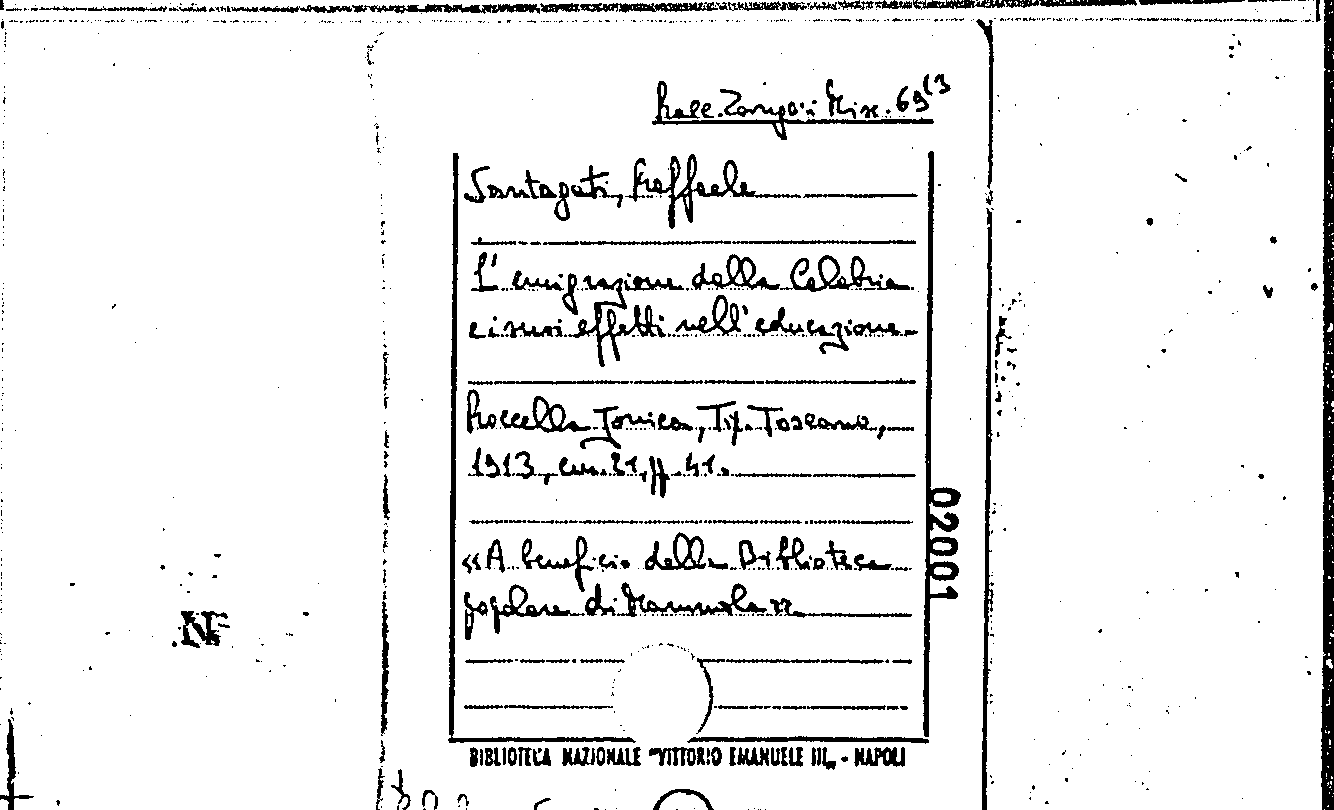 Racc. Zangari Misc. 69¹³
Santagati, Raffaele
L'emigrazione dalla Calabria
e i suoi effetti nell'educazione.
Roccella Jonica, Tip. Toscano,
1913, cm. 21, pp. 41.
«A beneficio della Biblioteca
popolare di Mammola».
02001
BIBLIOTECA NAZIONALE "VITTORIO EMANUELE III„ - NAPOLI